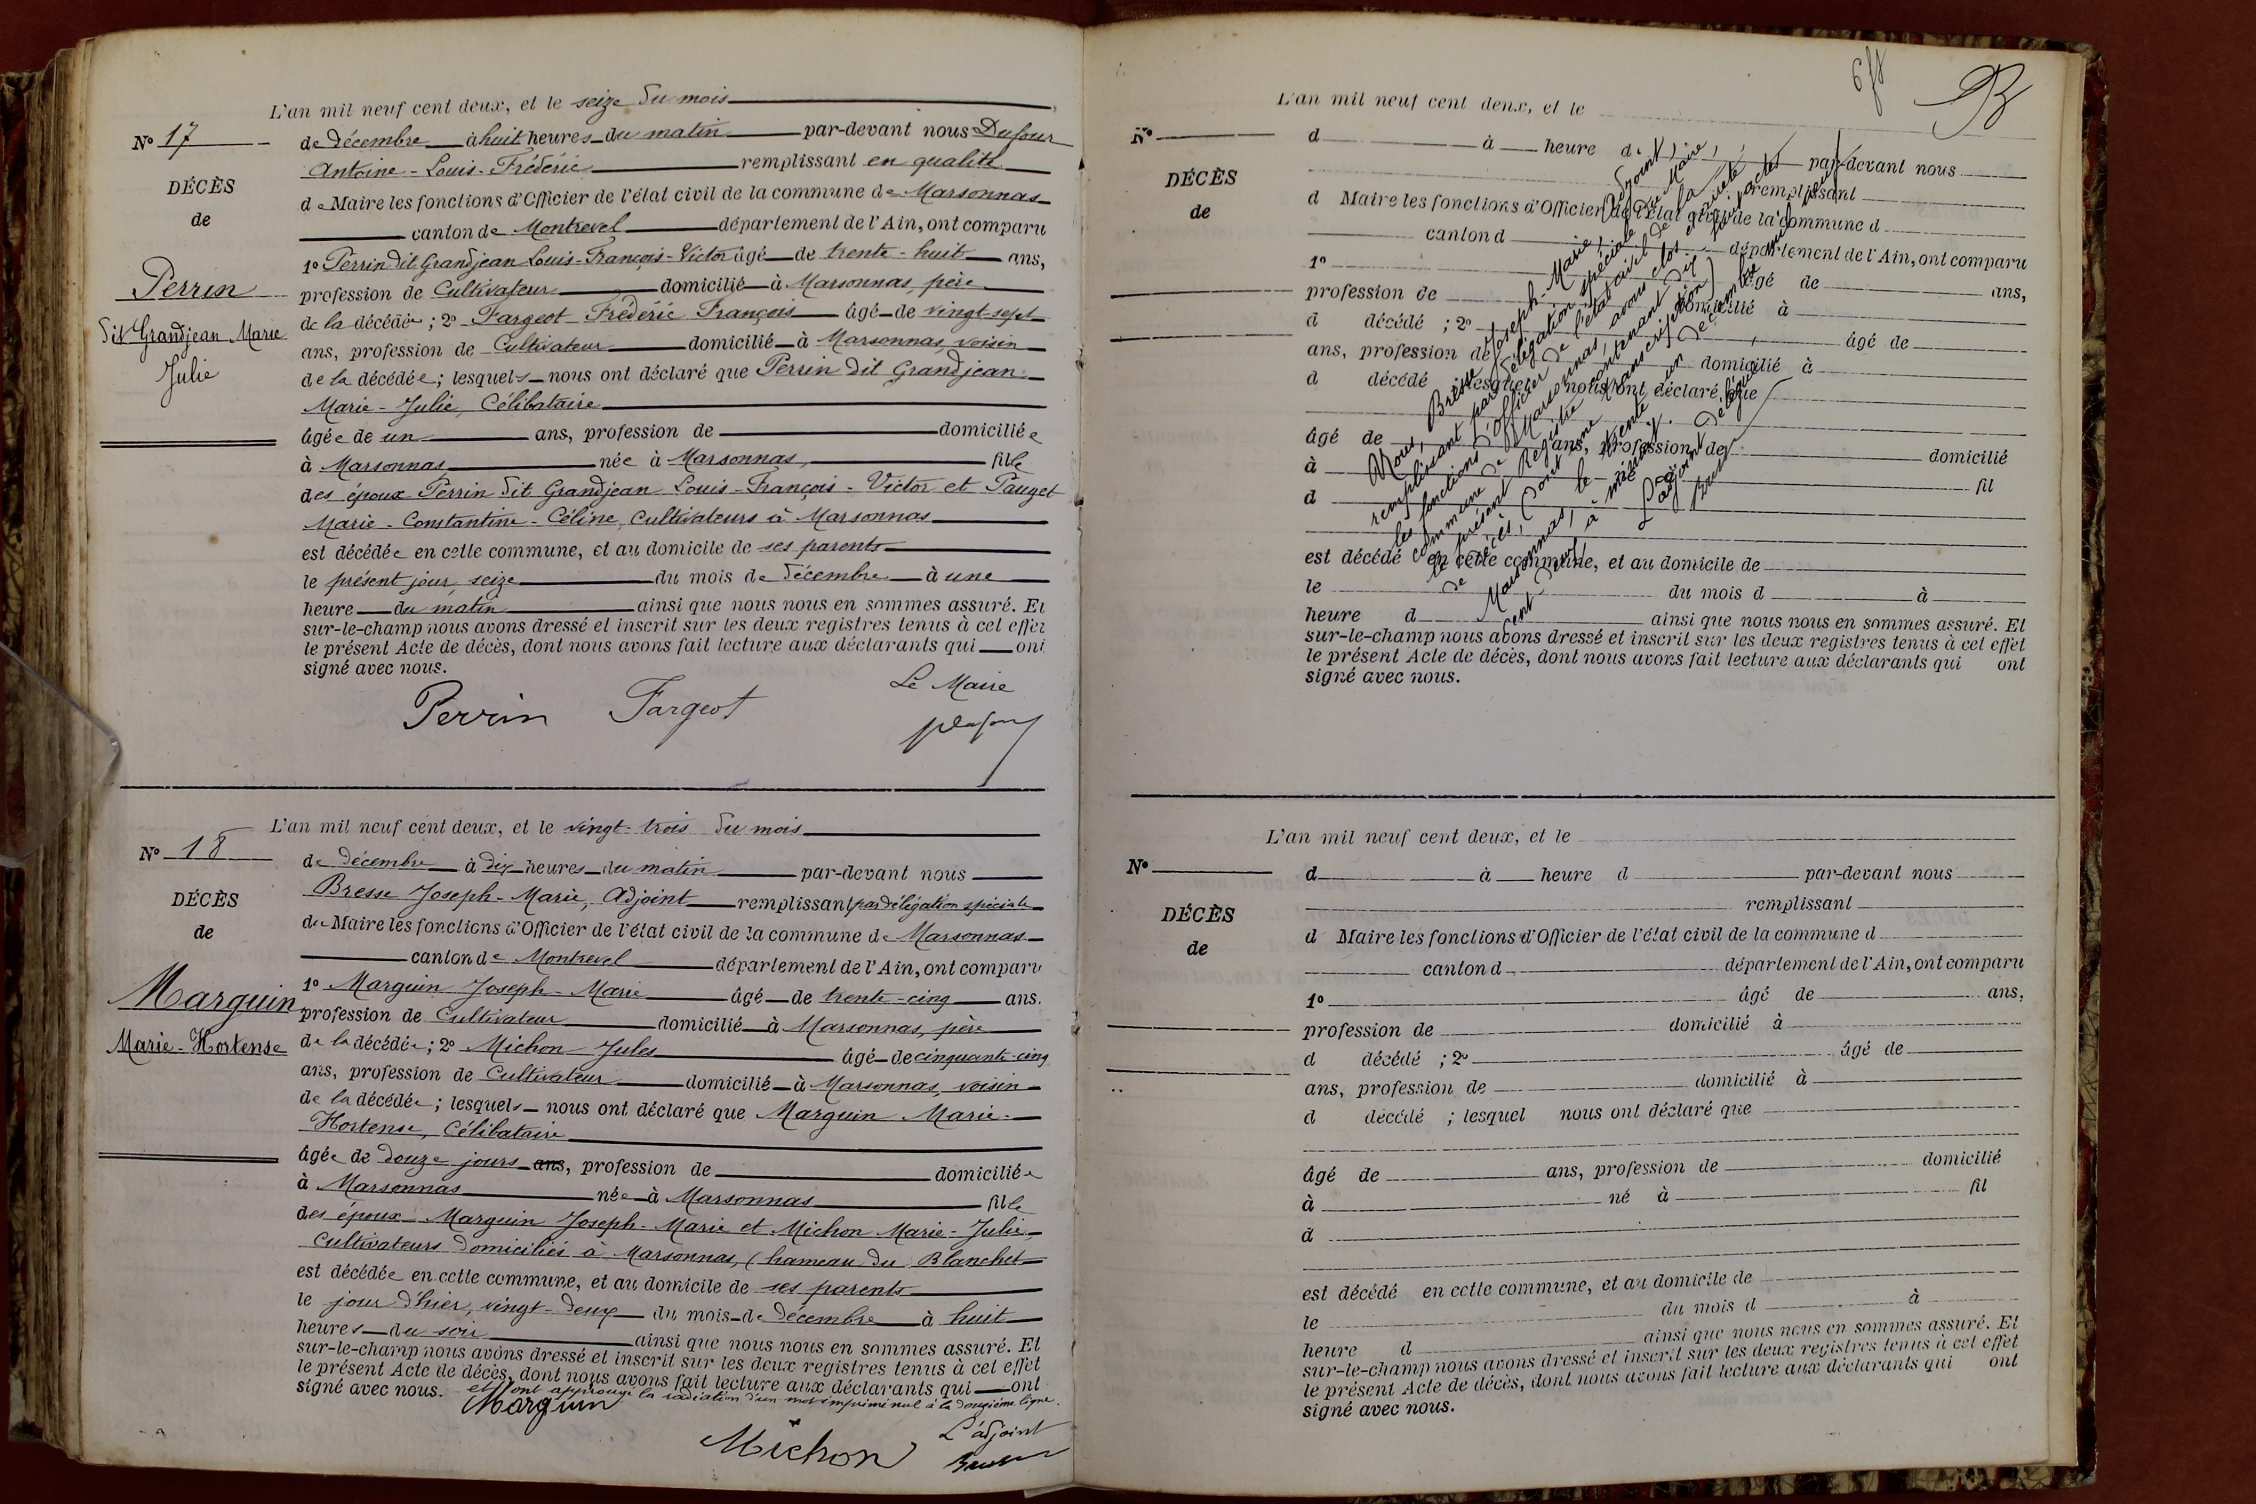 L'an mil neuf cent deux, et le seize du mois
N° 17
de décembre à huit heures du matin par-devant nous Dufour
Antoine - Louis - Frédéric remplissant en qualité
DÉCÈS
de Maire les fonctions d'Officier de l'état civil de la commune de Marsonnas
de
canton de Montrevel département de l'Ain, ont comparu
1° Perrin dit Grandjean Louis - François - Victor âgé de trente - huit ans,
Perren
profession de Cultivateur domicilié à Marsonnas, père
dit Grandjean Marie
de la décédée ; 2° Fargeot Frédéric François âgé de vingt-sept
ans, profession de Cultivateur domicilié à Marsonnas, voisin
Julie
de la décédée ; lesquels nous ont déclaré que Perrin dit Grandjean
Marie - Julie, Célibataire
âgée de un ans, profession de domiciliée
à Marsonnas née à Marsonnas, fille
des époux Perrin dit Grandjean Louis - François - Victor et Pauget
Marie - Constantine - Céline, Cultivateurs à Marsonnas
est décédée en cette commune, et au domicile de ses parents
le présent jour, seize du mois de décembre à une
heure du matin ainsi que nous nous en sommes assuré. Et
sur-le-champ nous avons dressé et inscrit sur les deux registres tenus à cet effet
le présent Acte de décès, dont nous avons fait lecture aux déclarants qui ont
signé avec nous.
Le Maire
Perrin Fargeot
L'an mil neuf cent deux, et le vingt-trois du mois
N° 18
de décembre à dix heures du matin par-devant nous
Bresse Joseph - Marie, Adjoint remplissant par délégation spéciale
DÉCÈS
du Maire les fonctions d'Officier de l'état civil de la commune de Marsonnas
de
canton de Montrevel département de l'Ain, ont comparu
1° Marguin Joseph - Marie âgé de trente - cinq ans,
Marguin
profession de Cultivateur domicilié à Marsonnas, père
Marie - Hortense
de la décédée ; 2° Michon Jules âgé de cinquante-cinq
ans, profession de Cultivateur domicilié à Marsonnas, voisin
de la décédée ; lesquels nous ont déclaré que Marguin Marie -
Hortense, Célibataire
âgée de douze jours ans, profession de domiciliée
à Marsonnas née à Marsonnas fille
des époux Marguin Joseph - Marie et Michon Marie - Julie,
Cultivateurs domiciliés à Marsonnas, (hameau du Blanchet
est décédée en cette commune, et au domicile de ses parents
le jour d'hier, vingt-deux du mois de décembre à huit
heures du soir ainsi que nous nous en sommes assuré. Et
sur-le-champ nous avons dressé et inscrit sur les deux registres tenus à cet effet
le présent Acte de décès, dont nous avons fait lecture aux déclarants qui ont
signé avec nous. et ont approuvé la radiation d'un mot imprimé nul à la douzième ligne.
Marguin
L'adjoint
Michon
Bresse
L'an mil neuf cent deux, et le
N°
d à heure d par-devant nous
remplissant
DÉCÈS
d Maire les fonctions d'Officier de l'état civil de la commune d
de
canton d département de l'Ain, ont comparu
1° âgé de ans,
profession de domicilié à
d décédé ; 2° âgé de
ans, profession de domicilié à
d décédé ; lesquel nous ont déclaré que
âgé de ans, profession de domicilié
à
d fil
est décédé en cette commune, et au domicile de
le du mois d à
heure d ainsi que nous nous en sommes assuré. Et
sur-le-champ nous avons dressé et inscrit sur les deux registres tenus à cet effet
le présent Acte de décès, dont nous avons fait lecture aux déclarants qui ont
signé avec nous.
Nous, Bresse Joseph - Marie, Adjoint,
remplissant par délégation spéciale du Maire,
les fonctions d'officier de l'état civil de la
commune de Marsonnas, avons clos et arrêté
le présent Registre contenant dix actes
de décès, (dont une transcription)
Marsonnas, le trente un décembre mil neuf
cent deux, à
L'adjoint délégué
Bresse
L'an mil neuf cent deux, et le
N°
d à heure d par-devant nous
remplissant
DÉCÈS
d Maire les fonctions d'Officier de l'état civil de la commune d
de
canton d département de l'Ain, ont comparu
1° âgé de ans,
profession de domicilié à
d décédé ; 2° âgé de
ans, profession de domicilié à
d décédé ; lesquel nous ont déclaré que
âgé de ans, profession de domicilié
à né à fil
d
est décédé en cette commune, et au domicile de
le du mois d à
heure d ainsi que nous nous en sommes assuré. Et
sur-le-champ nous avons dressé et inscrit sur les deux registres tenus à cet effet
le présent Acte de décès, dont nous avons fait lecture aux déclarants qui ont
signé avec nous.